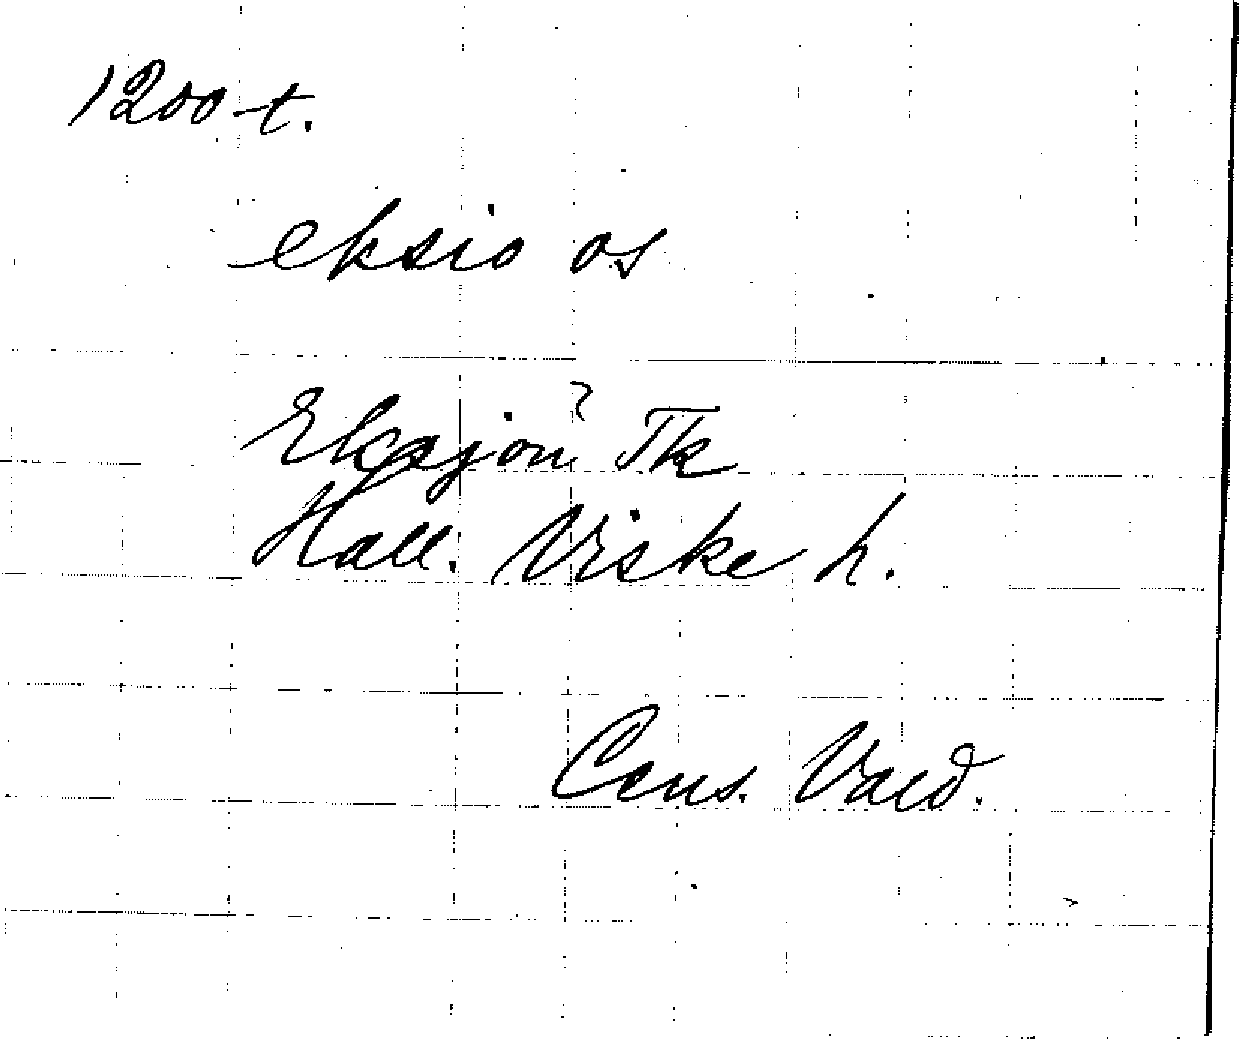 1200-t.
eksio os
?
Eksjön Tk
Hall. Viske h.
Cens. Vald.